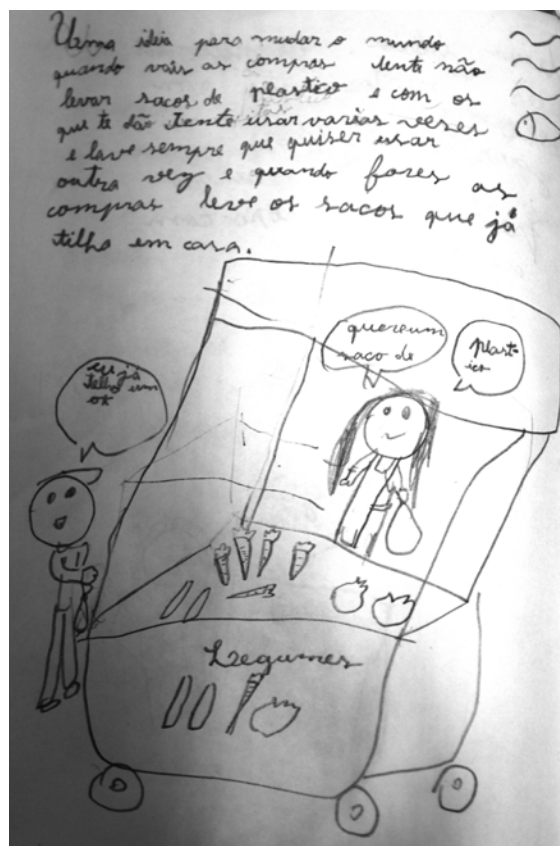 Uema ideia para mudar o mundo
quando vais as compras tente não
levar sacos de plastico e com os
que te dão tente usar varias veses
e lave sempre que quiser usar
outra vez e quando fores as
compras leve os sacos que já
tilho em casa.
quereum
saco de
plast-
ico
eu já
telho um
ok
Legumes